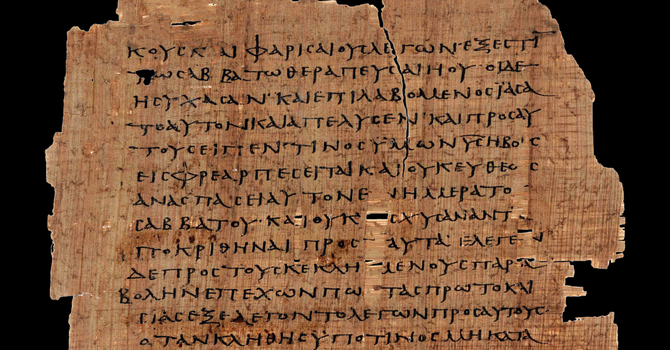 ΚΟΥϹΚΑΙΦΑΡΙϹΑΙΟΥϹΛΕΓΩΝΕΞΕϹΤΙ
ΤΩϹΑΒΒΑΤΩΘΕΡΑΠΕΥϹΑΙΗΟΥ·ΟΙΔΕ
ΗϹΥΧΑϹΑΝ·ΚΑΙΕΠΙΛΑΒΟΜΕΝΟϹΙΑϹΑ
ΤΟΑΥΤΟΝΚΑΙΑΠΕΛΥϹΕΝ·ΚΑΙΠΡΟϹΑΥ
ΤΟΥϹΕΙΠΕΝ·ΤΙΝΟϹΥΜΩΝΥϹΗΒΟΥϹ
ΕΙϹΦΡΕΑΡΠΕϹΕΙΤΑΙΚΑΙΟΥΚΕΥΘΕΩϹ
ΑΝΑϹΠΑϹΕΙΑΥΤΟΝΕΝΗΜΕΡΑΤΟ
ϹΑΒΒΑΤΟΥ·ΚΑΙΟΥΚ ϹΧΥϹΑΝΑΝΤ
ΠΟΚΡΙΘΗΝΑΙΠΡΟϹ ΑΥΤΑ ΕΛΕΓΕΝ
ΔΕΠΡΟϹΤΟΥϹΚΕΚΛΗΜΕΝΟΥϹΠΑΡΑ
ΒΟΛΗΝΕΠΕΧΩΝΠΩ ΤΑϹΠΡΩΤΟΚΛΙ
ϹΙΑϹΕΞΕΛΕΓΟΝΤΟΛΕΓΩΝΠΡΟϹΑΥΤΟΥϹ·
ΟΤΑΝΚΛΗΘΗϹΥΠΟΤΙΝΟϹΜΗΚΑΤΑ